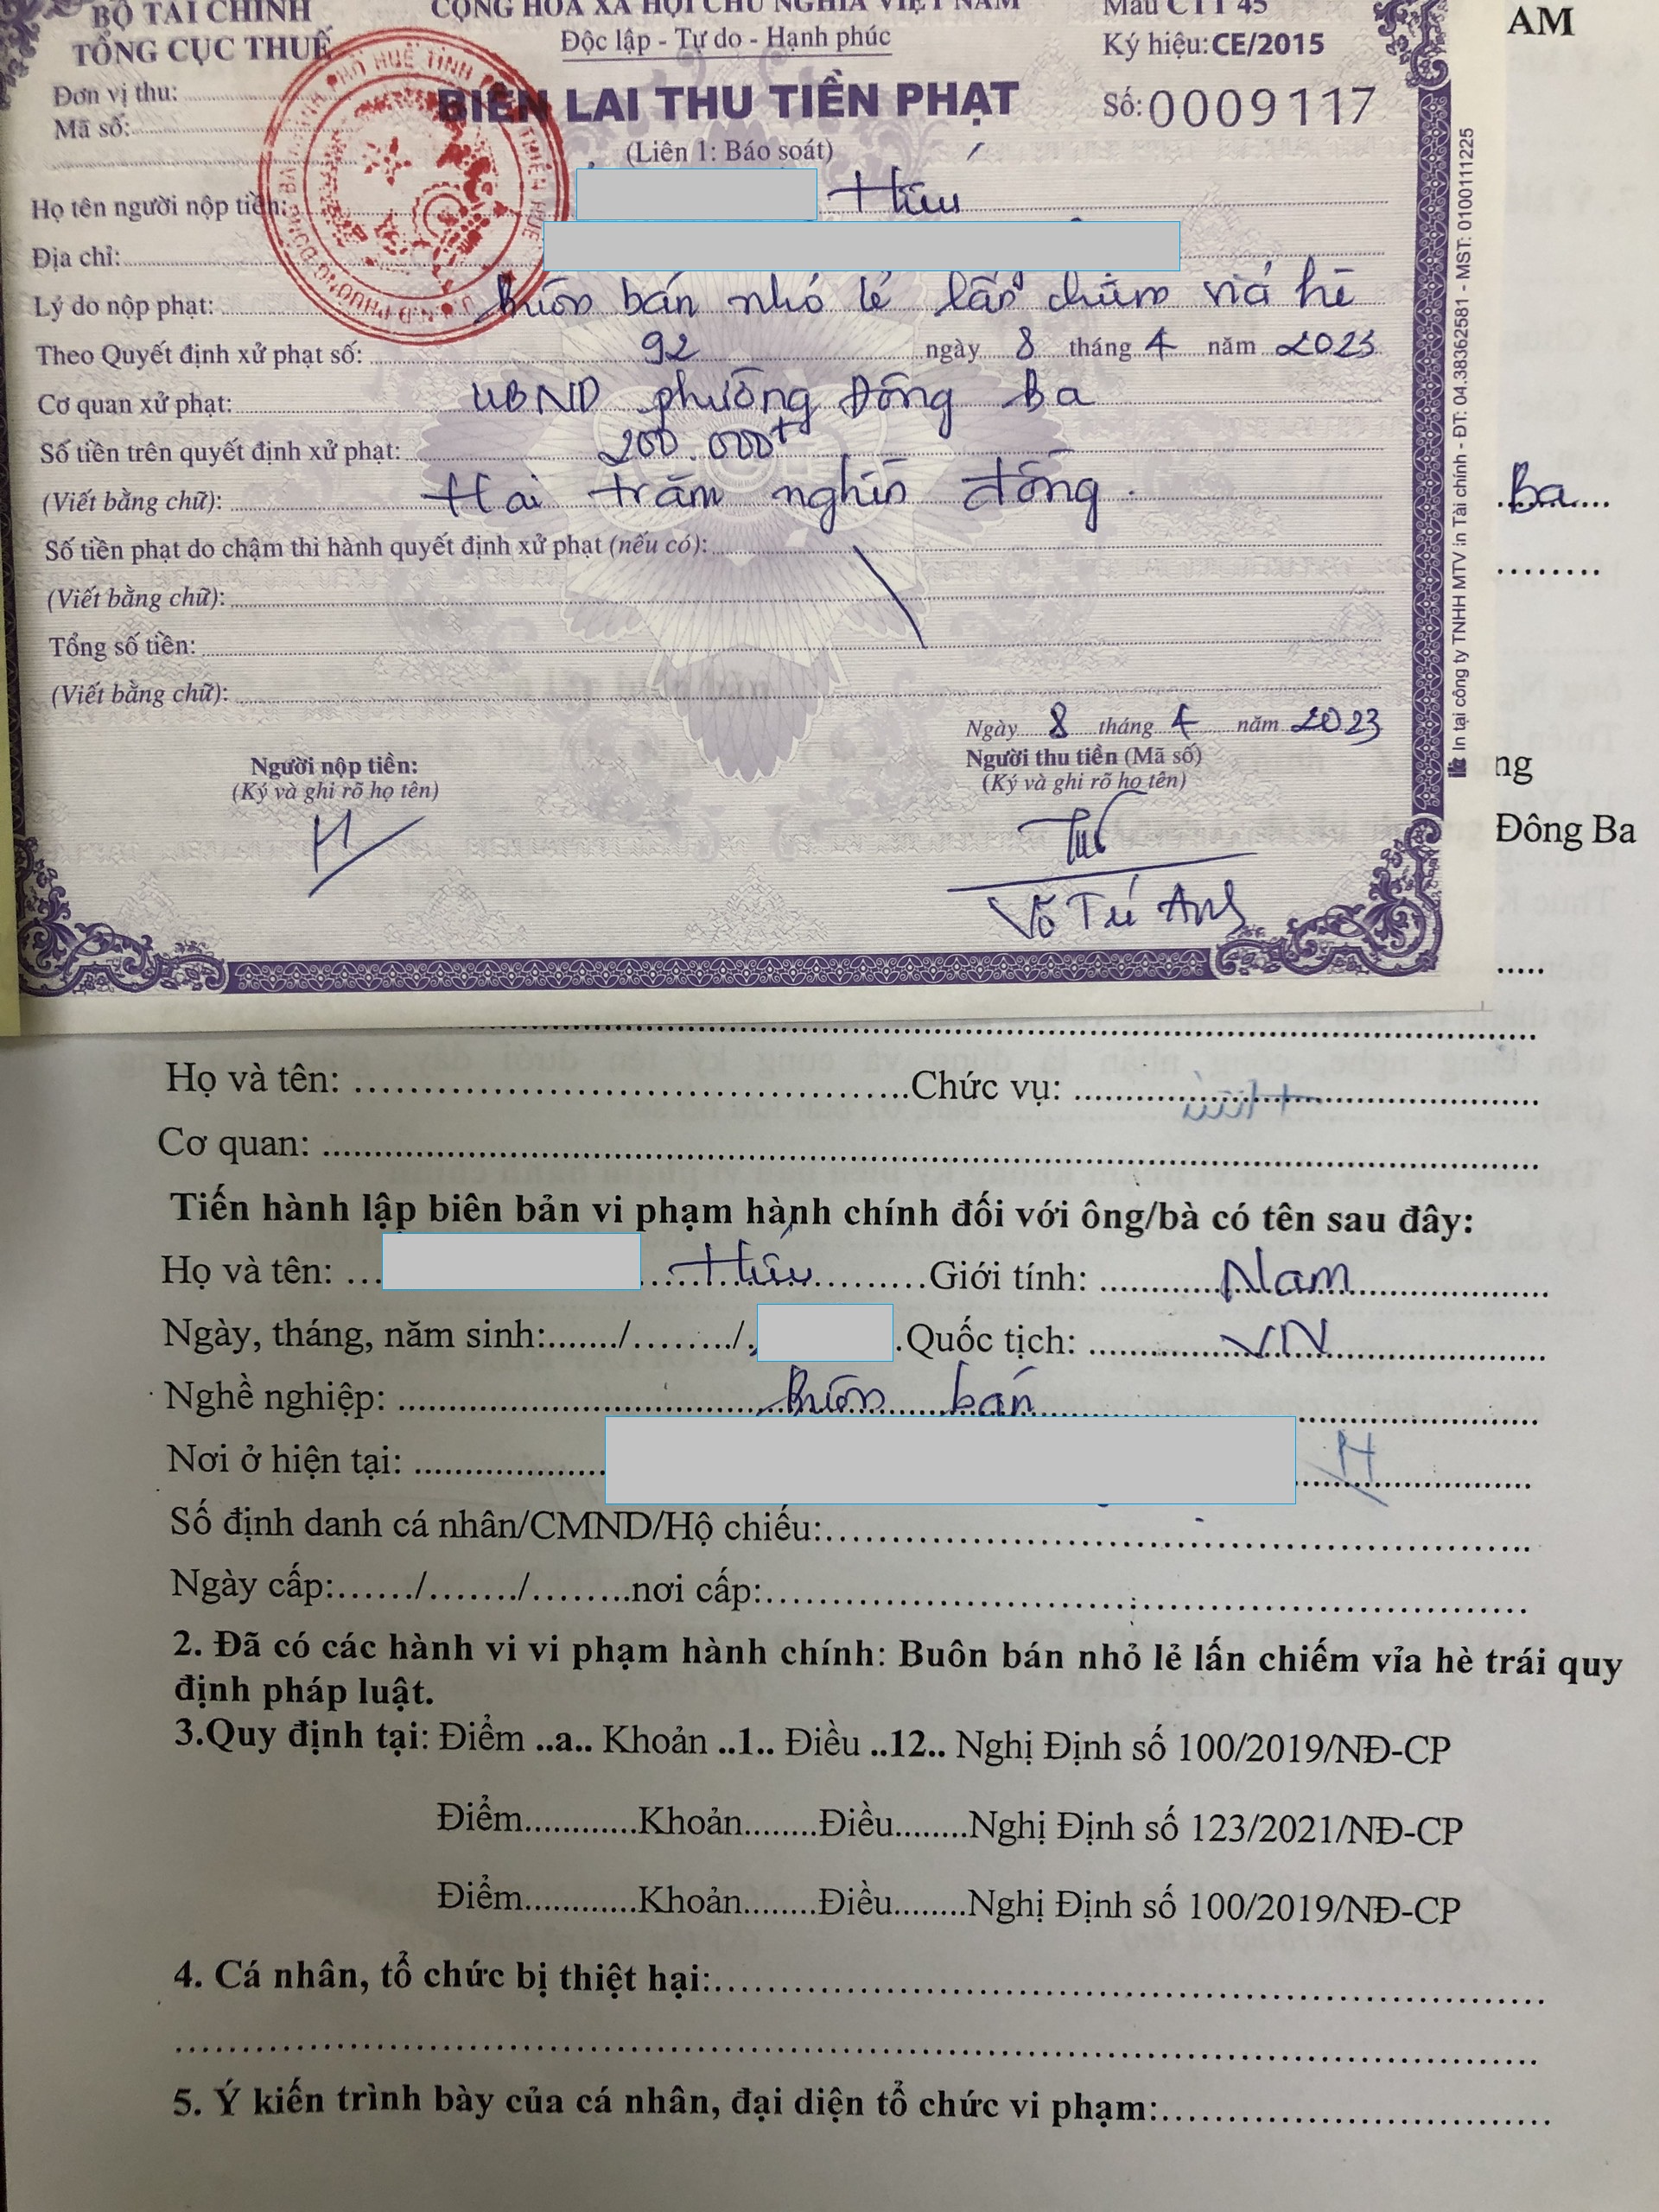 BỘ TÀI CHÍNH
TỔNG CỤC THUẾ
CỘNG HÒA XÃ HỘI CHỦ NGHĨA VIỆT NAM
Độc lập - Tự do - Hạnh phúc
Mẫu CTT 45
Ký hiệu: CE/2015
AM
Đơn vị thu:
Mã số:
BIÊN LAI THU TIỀN PHẠT
Số: 0009117
(Liên 1: Báo soát)
Họ tên người nộp tiền: Hiếu
Địa chỉ:
Lý do nộp phạt: Buôn bán nhỏ lẻ lấn chiếm vỉa hè
Theo Quyết định xử phạt số: 92 ngày 8 tháng 4 năm 2023
Cơ quan xử phạt: UBND phường Đông Ba
Số tiền trên quyết định xử phạt: 200.000đ
(Viết bằng chữ): Hai trăm nghìn đồng.
Số tiền phạt do chậm thi hành quyết định xử phạt (nếu có):
(Viết bằng chữ):
Tổng số tiền:
(Viết bằng chữ):
Ngày 8 tháng 4 năm 2023
Người nộp tiền:
(Ký và ghi rõ họ tên)
Người thu tiền (Mã số)
(Ký và ghi rõ họ tên)
Võ Tú Anh
In tại công ty TNHH MTV In Tài chính - ĐT: 04.38362581 - MST: 0100111225
Ba
ng
Đông Ba
Họ và tên: Chức vụ:
Cơ quan:
Tiến hành lập biên bản vi phạm hành chính đối với ông/bà có tên sau đây:
Họ và tên: Hiếu Giới tính: Nam
Ngày, tháng, năm sinh:......./......../. Quốc tịch: VN
Nghề nghiệp: Buôn bán
Nơi ở hiện tại:
Số định danh cá nhân/CMND/Hộ chiếu:
Ngày cấp:....../......./........nơi cấp:
2. Đã có các hành vi vi phạm hành chính: Buôn bán nhỏ lẻ lấn chiếm vỉa hè trái quy
định pháp luật.
3.Quy định tại: Điểm ..a.. Khoản ..1.. Điều ..12.. Nghị Định số 100/2019/NĐ-CP
Điểm............Khoản........Điều........Nghị Định số 123/2021/NĐ-CP
Điểm............Khoản........Điều........Nghị Định số 100/2019/NĐ-CP
4. Cá nhân, tổ chức bị thiệt hại:
5. Ý kiến trình bày của cá nhân, đại diện tổ chức vi phạm: